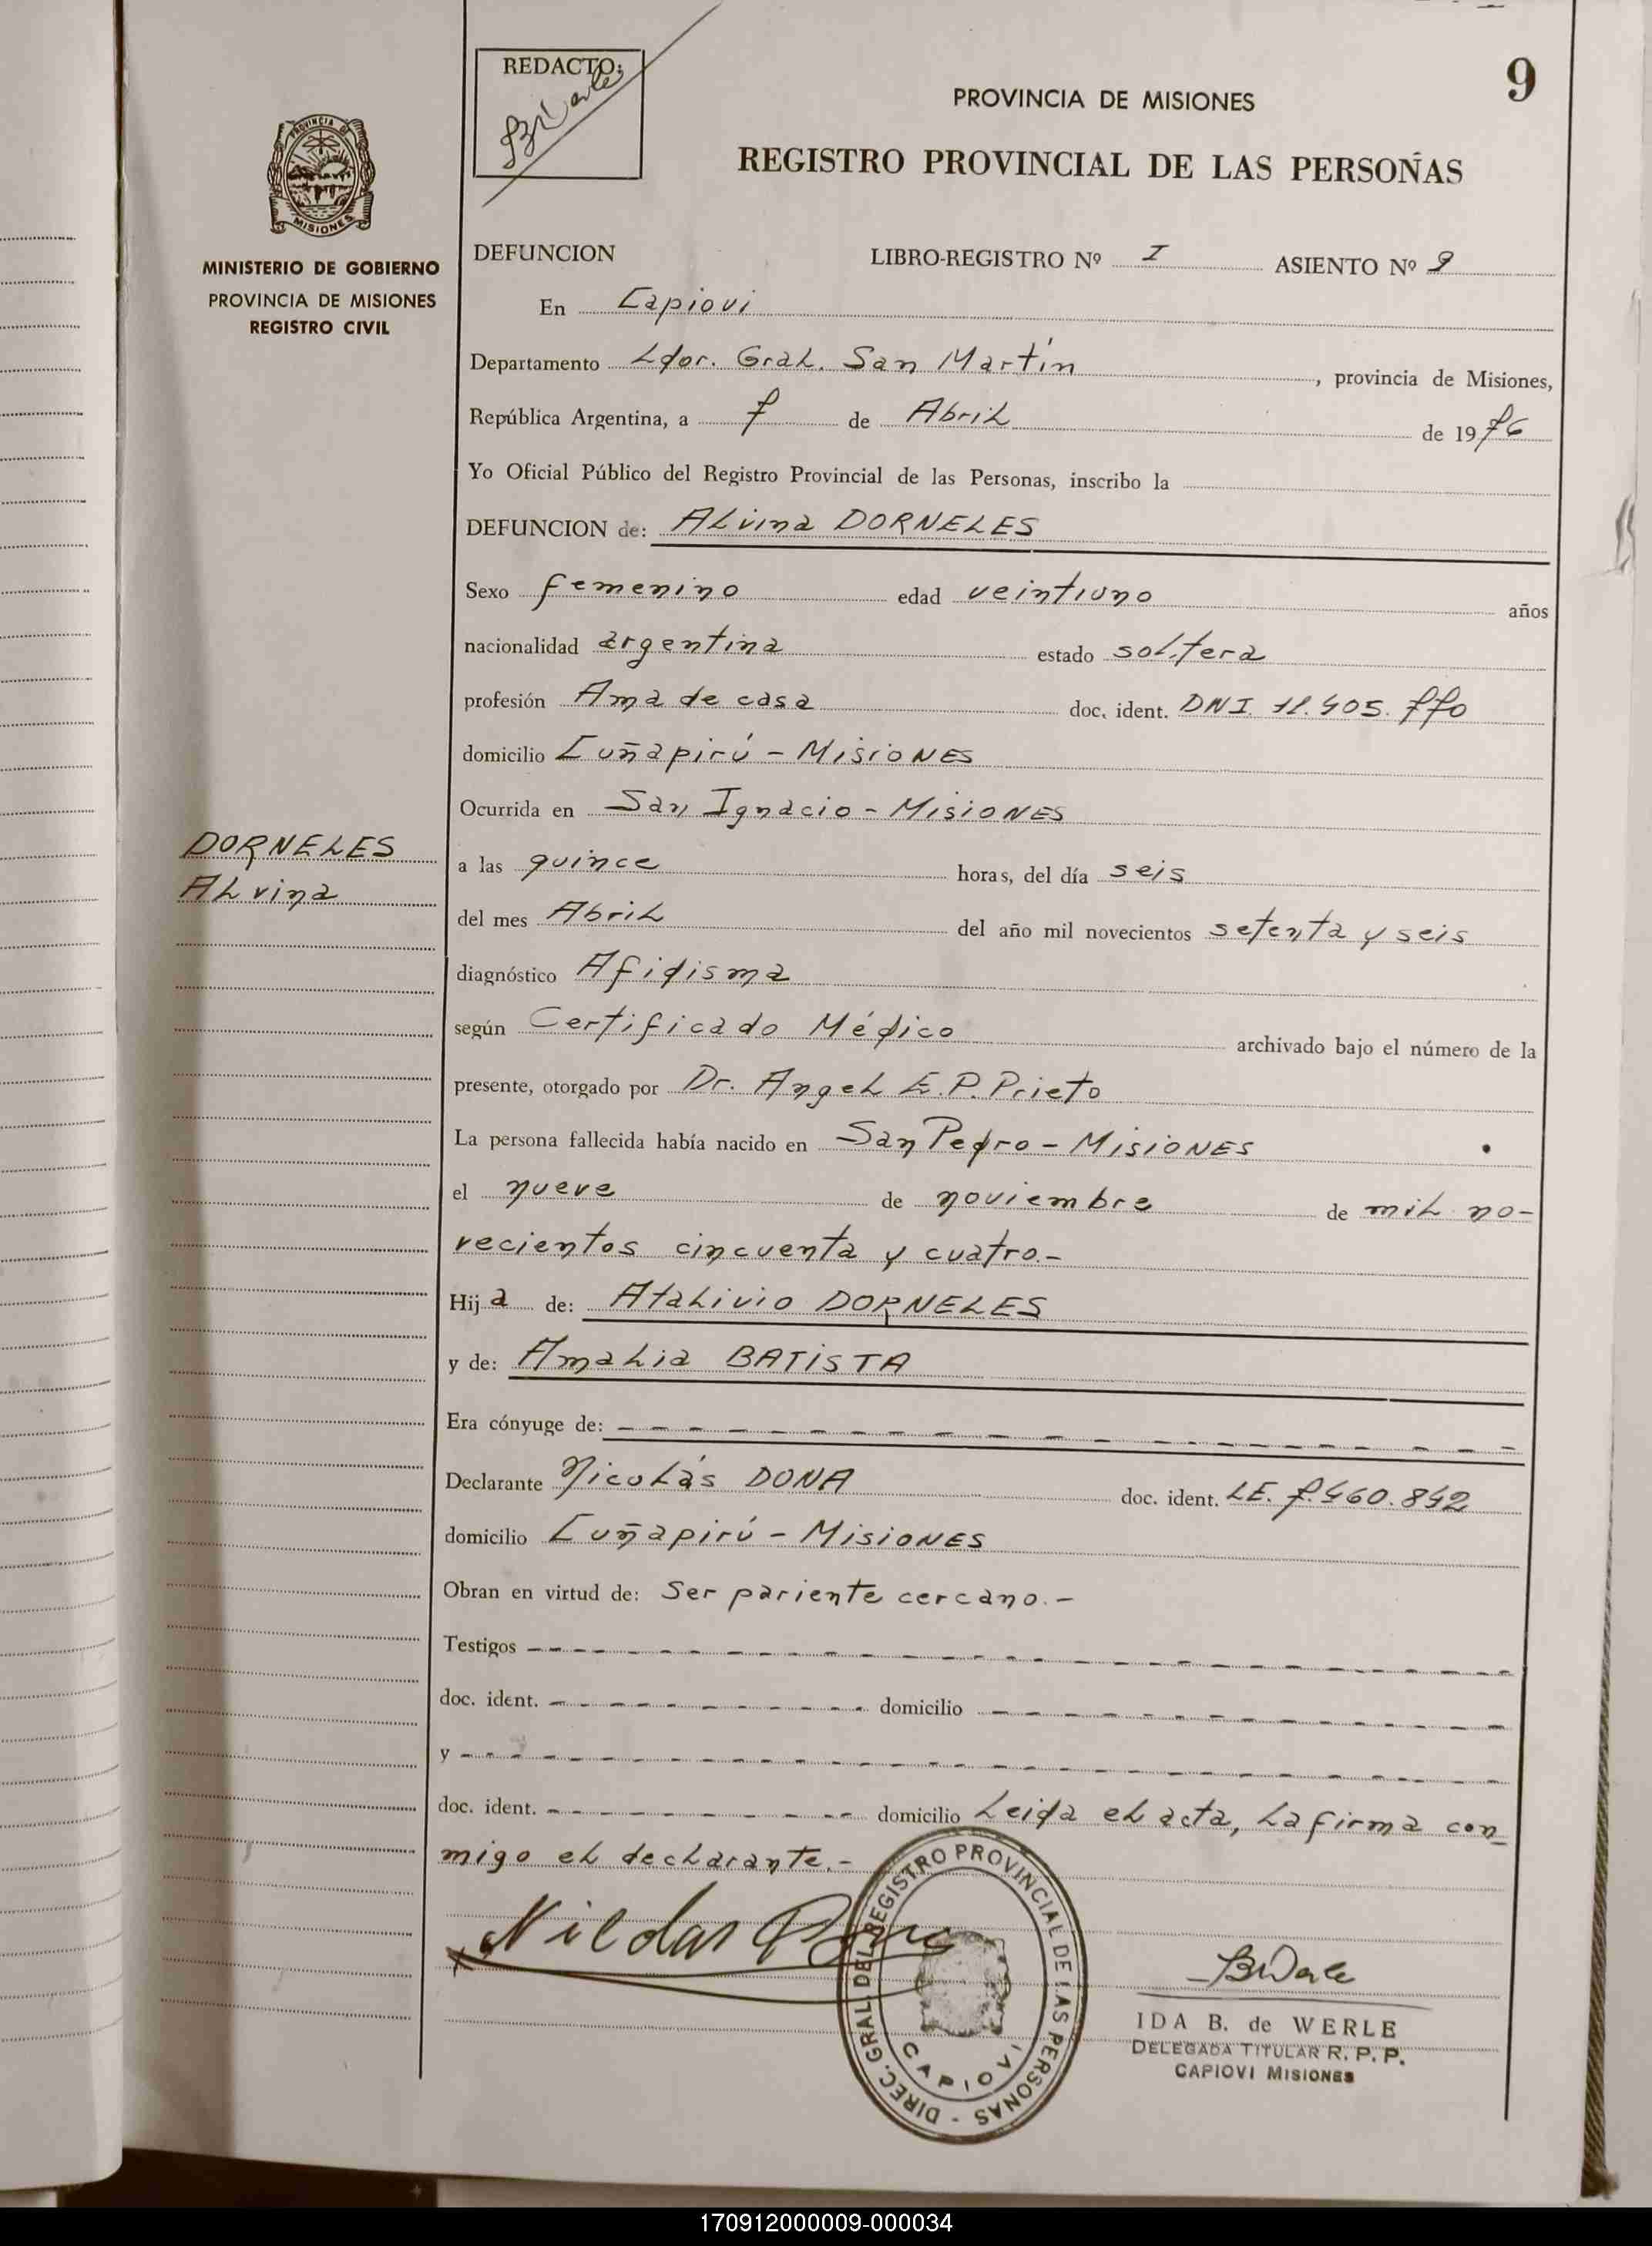 9
REDACTO:
BWerle
PROVINCIA DE MISIONES
REGISTRO PROVINCIAL DE LAS PERSONAS
PROVINCIA DE
MISIONES
MINISTERIO DE GOBIERNO
PROVINCIA DE MISIONES
REGISTRO CIVIL
DEFUNCION LIBRO-REGISTRO Nº I ASIENTO Nº 9
En Capiovi
Departamento Ldor. Gral. San Martín, provincia de Misiones,
República Argentina, a 7 de Abril de 1976
Yo Oficial Público del Registro Provincial de las Personas, inscribo la
DEFUNCION de: Alvina DORNELES
Sexo femenino edad veintiuno años
nacionalidad argentina estado soltera
profesión Ama de casa doc. ident. DNI. 11.405.770
domicilio Cuñapirú - MisioNES
Ocurrida en San Ignacio - MisioNES
DORNELES
Alvina
a las quince horas, del día seis
del mes Abril del año mil novecientos setenta y seis
diagnóstico Afidisma
según Certificado Médico archivado bajo el número de la
presente, otorgado por Dr. Angel E.P. Prieto
La persona fallecida había nacido en San Pedro - MisioNES
el nueve de noviembre de mil no-
vecientos cincuenta y cuatro.-
Hija de: Atalivio DORNELES
y de: Amalia BATISTA
Era cónyuge de: - - - - - - - - - - - - - - - - - -
Declarante Nicolás DONA doc. ident. LE. 7.460.842
domicilio Cuñapirú - MisioNES
Obran en virtud de: Ser pariente cercano.-
Testigos - - - - - - - - - - - - - - - - - -
doc. ident. - - - - - - - - - domicilio - - - - - - - - - - - -
y - - - - - - - - - - - - - - - - - - - -
doc. ident. - - - - - - - - domicilio Leida el acta, la firma con
migo el declarante.-
DIREC. GRAL. DEL REGISTRO PROVINCIAL DE LAS PERSONAS -
CAPIOVI
BWerle
IDA B. de WERLE
DELEGADA TITULAR R. P. P.
CAPIOVI MISIONES
170912000009-000034